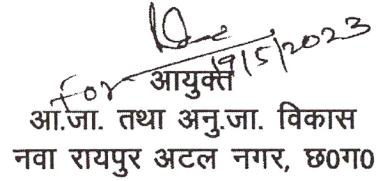 For 19/5/2023
आयुक्त
आ.जा. तथा अनु.जा. विकास
नवा रायपुर अटल नगर, छ0ग0